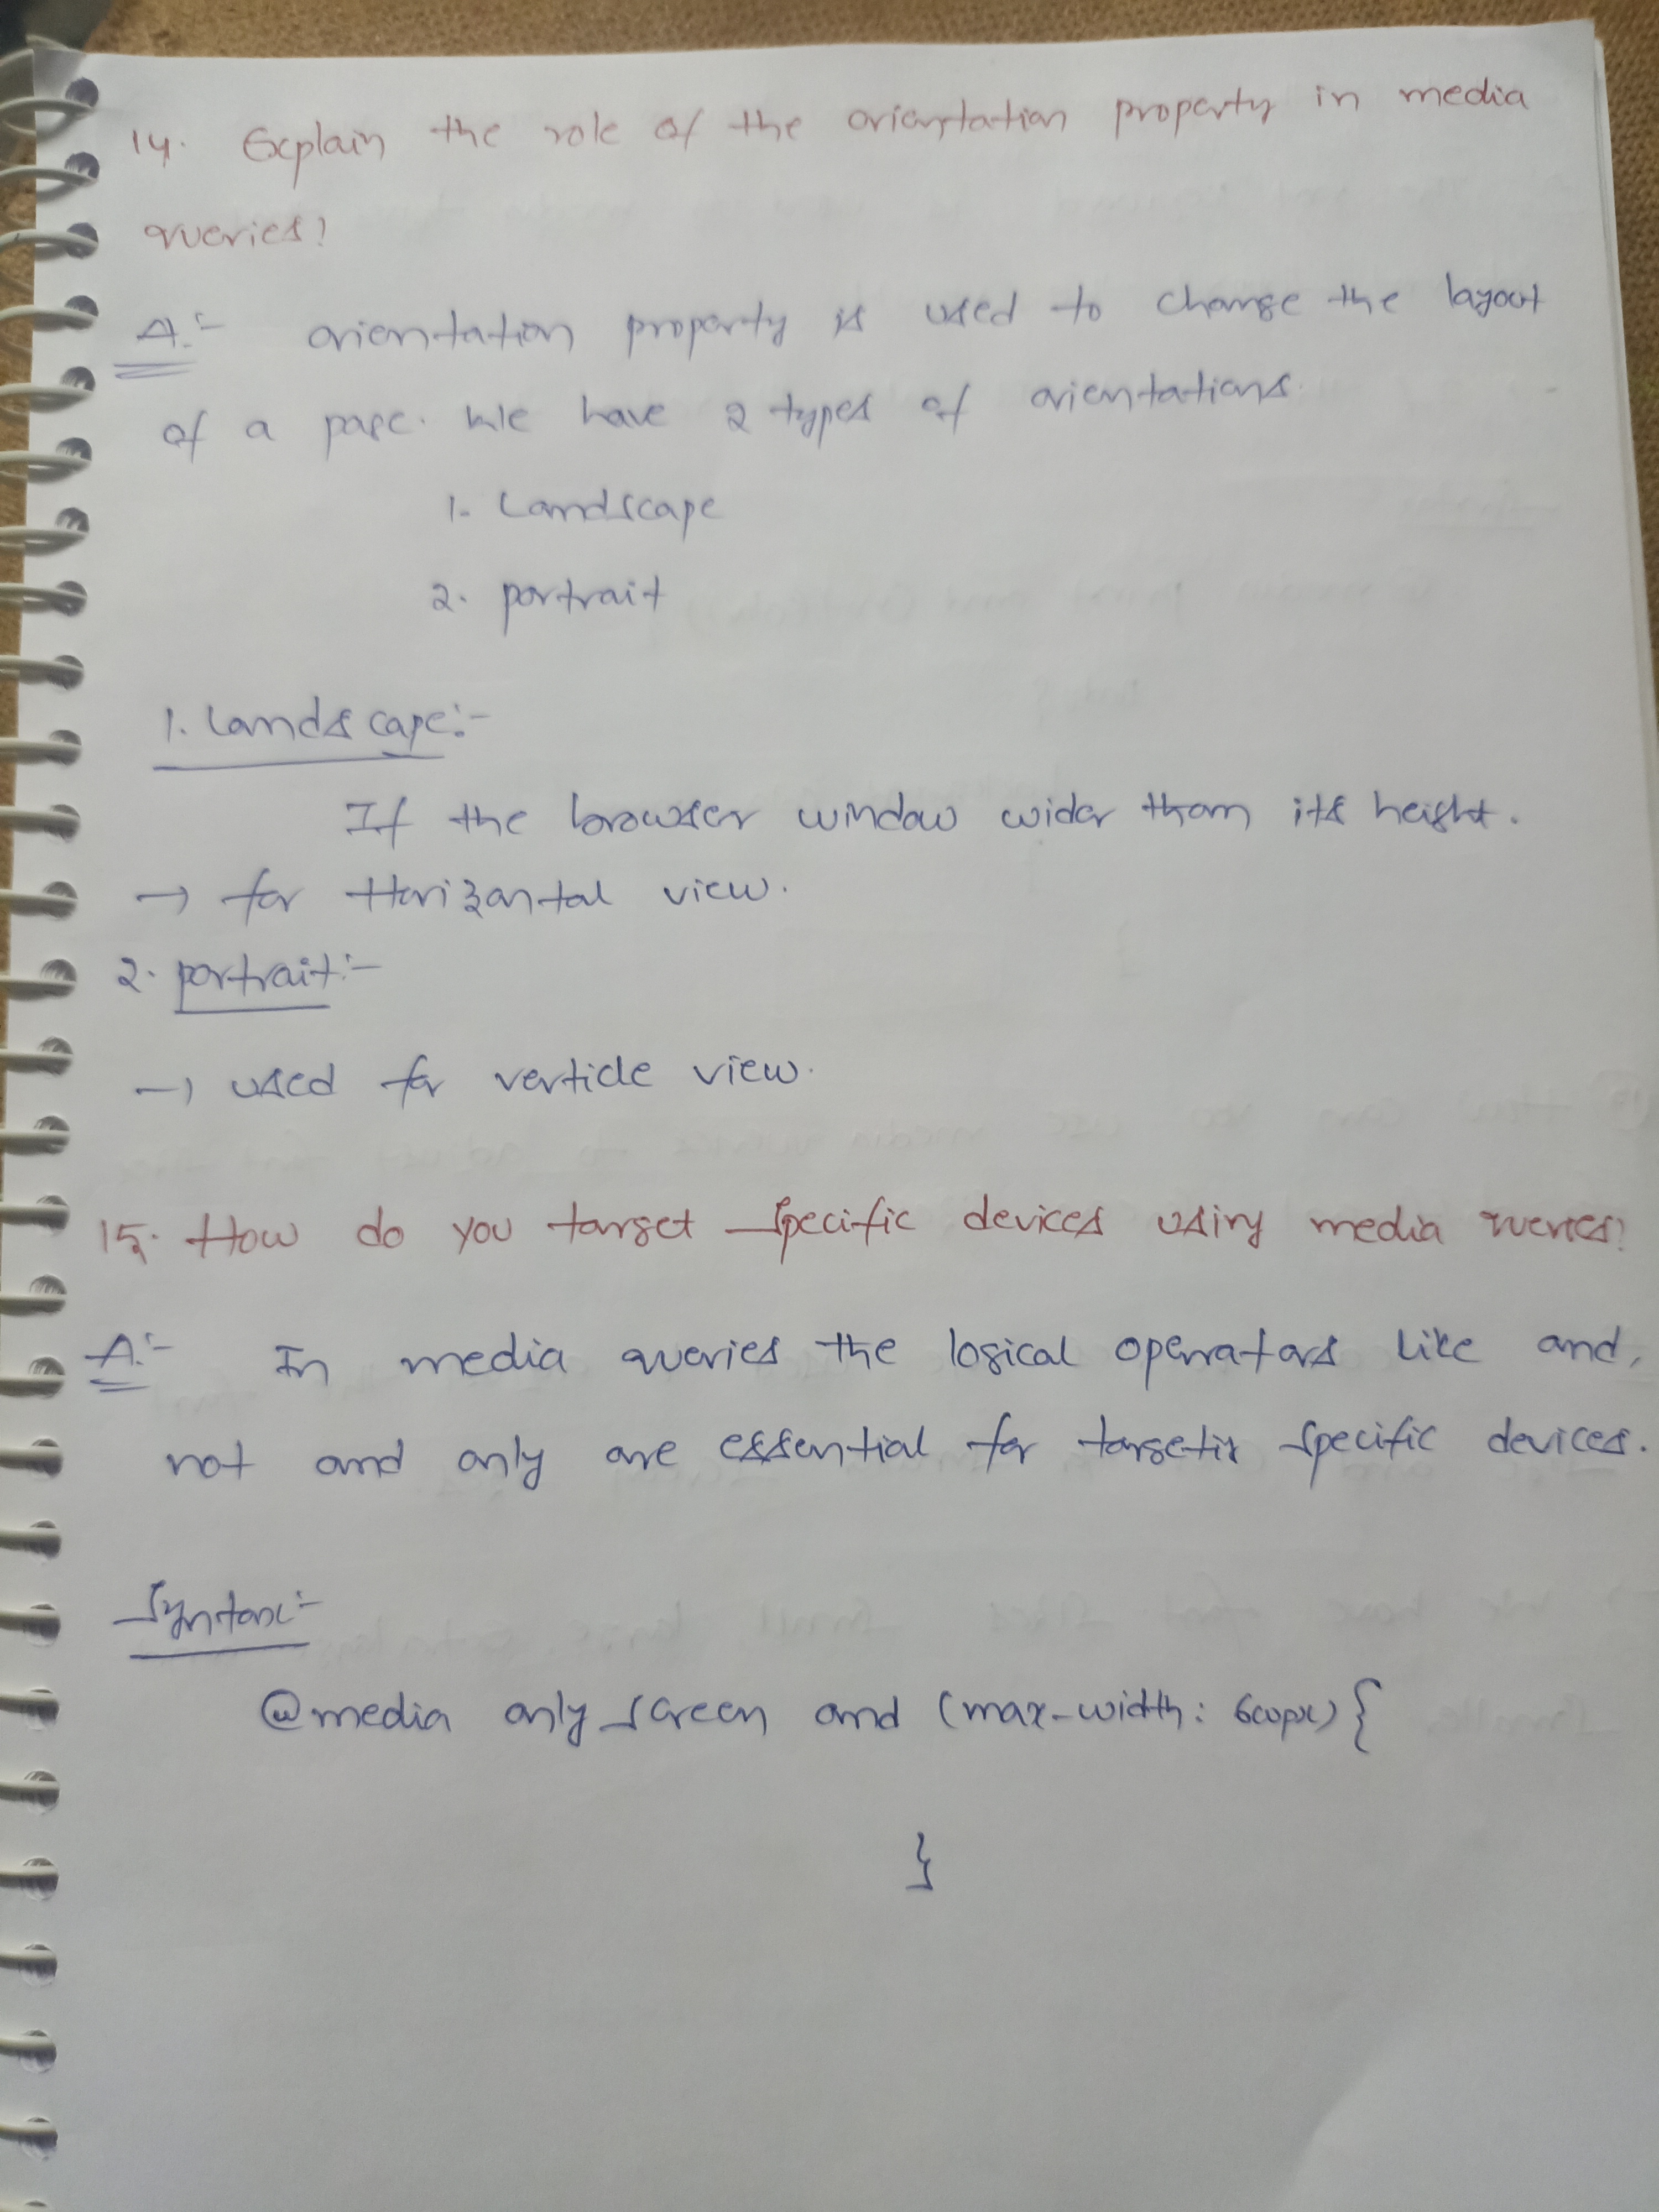 14. Explain the role of the orientation property in media
queries?
A:- orientation property is used to change the layout
of a page. We have 2 types of orientations.
1. Landscape
2. portrait
1. Landscape:-
If the browser window wider than its height.
→ for Horizontal view.
2. portrait:-
→ used for verticle view.
15. How do you target specific devices using media queries?
A:- In media queries the logical operators like and,
not and only are essential for targetig specific devices.
Syntax:-
@media only screen and (max-width: 600px) {
}